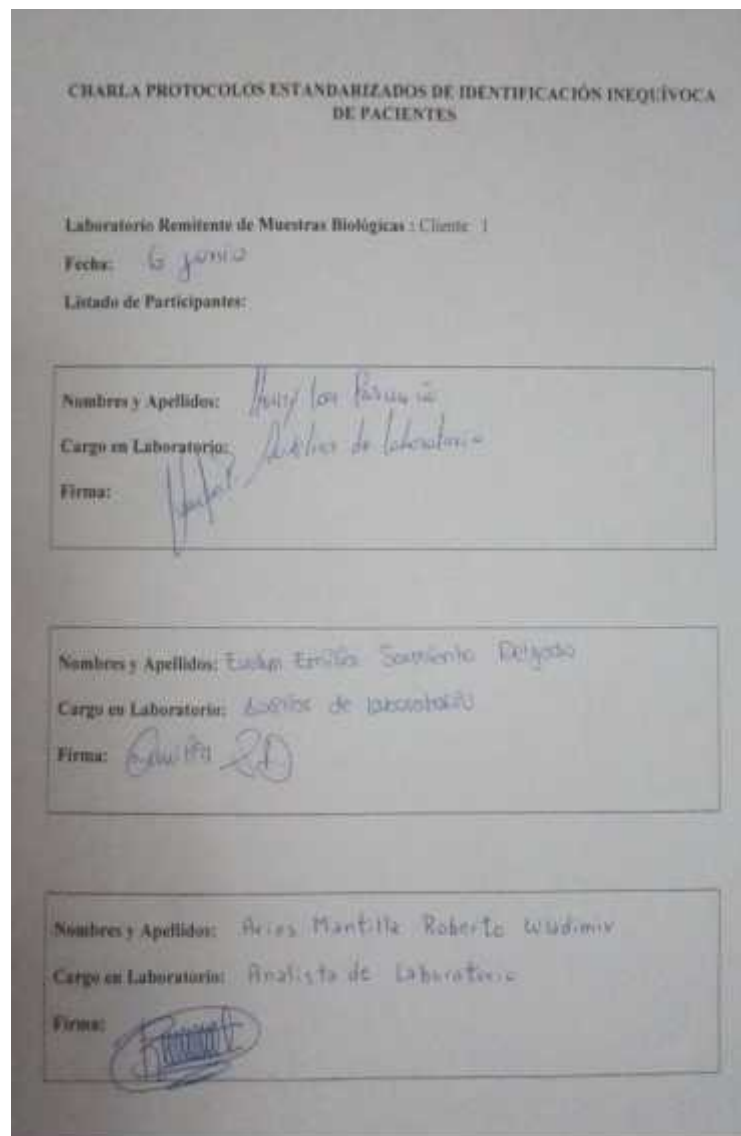 CHARLA PROTOCOLOS ESTANDARIZADOS DE IDENTIFICACIÓN INEQUÍVOCA
DE PACIENTES
Laboratorio Remitente de Muestras Biológicas : Cliente 1
Fecha: 6 junio
Listado de Participantes:
Nombres y Apellidos:
Cargo en Laboratorio: de laboratorio
Firma:
Nombres y Apellidos: Emilia Sarmiento Delgado
Cargo en Laboratorio: de laboratorio
Firma:
Nombres y Apellidos: Arias Mantilla Roberto Wladimir
Cargo en Laboratorio: Analista de Laboratorio
Firma: